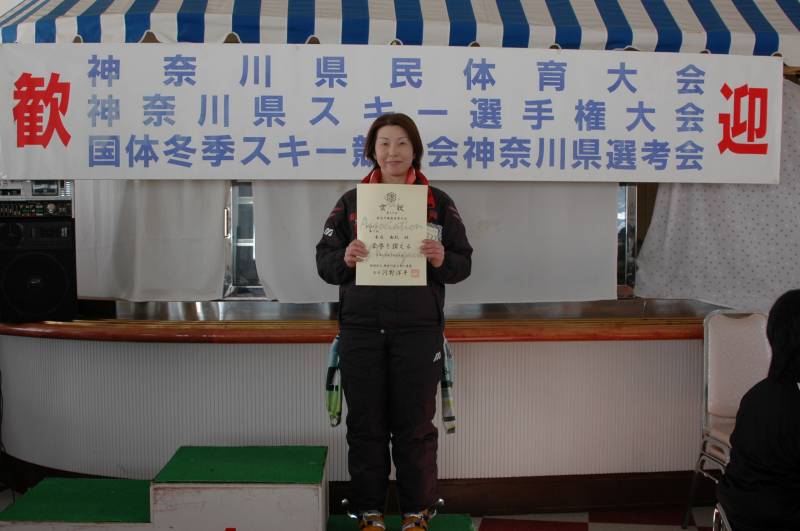 歓迎
神奈川県民体育大会
神奈川県スキー選手権大会
国体冬季スキー競 会神奈川県選考会
賞状
Association
河野洋平